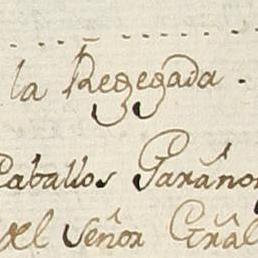 la Regegada.
Caballos Garañon
del Señor Grãl